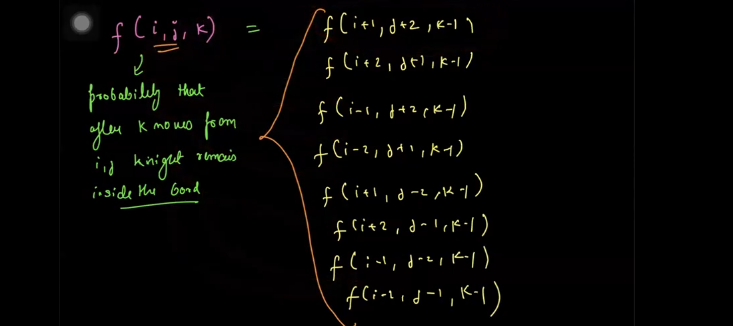 f (i, j, k) =
probability that
after K moves from
i, j knight remains
inside the bord
f (i+1, j+2, K-1)
f (i+2, j+1, K-1)
f (i-1, j+2, K-1)
f (i-2, j+1, K-1)
f (i+1, j-2, K-1)
f (i+2, j-1, K-1)
f (i-1, j-2, K-1)
f (i-2, j-1, K-1)